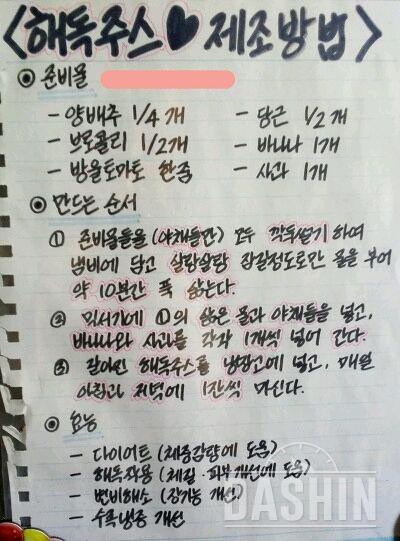 <해독주스♥제조방법>
◉ 준비물
- 양배추 1/4개 - 당근 1/2개
- 브로콜리 1/2개 - 바나나 1개
- 방울토마토 한줌 - 사과 1개
◉ 만드는 순서
① 준비물들을(야채들만) 모두 깍둑썰기 하여
냄비에 담고 찰랑찰랑 잠길정도로만 물을 부어
약 10분간 푹 삶는다.
② 믹서기에 ①의 삶은 물과 야채들을 넣고,
바나나와 사과를 각각 1개씩 넣어 간다.
③ 갈아진 해독주스를 냉장고에 넣고, 매일
아침과 저녁에 1잔씩 마신다.
◉ 효능
- 다이어트 (체중감량에 도움)
- 해독작용 (체질·피부개선에 도움)
- 변비해소 (장기능 개선)
- 수족냉증 개선
DASHIN